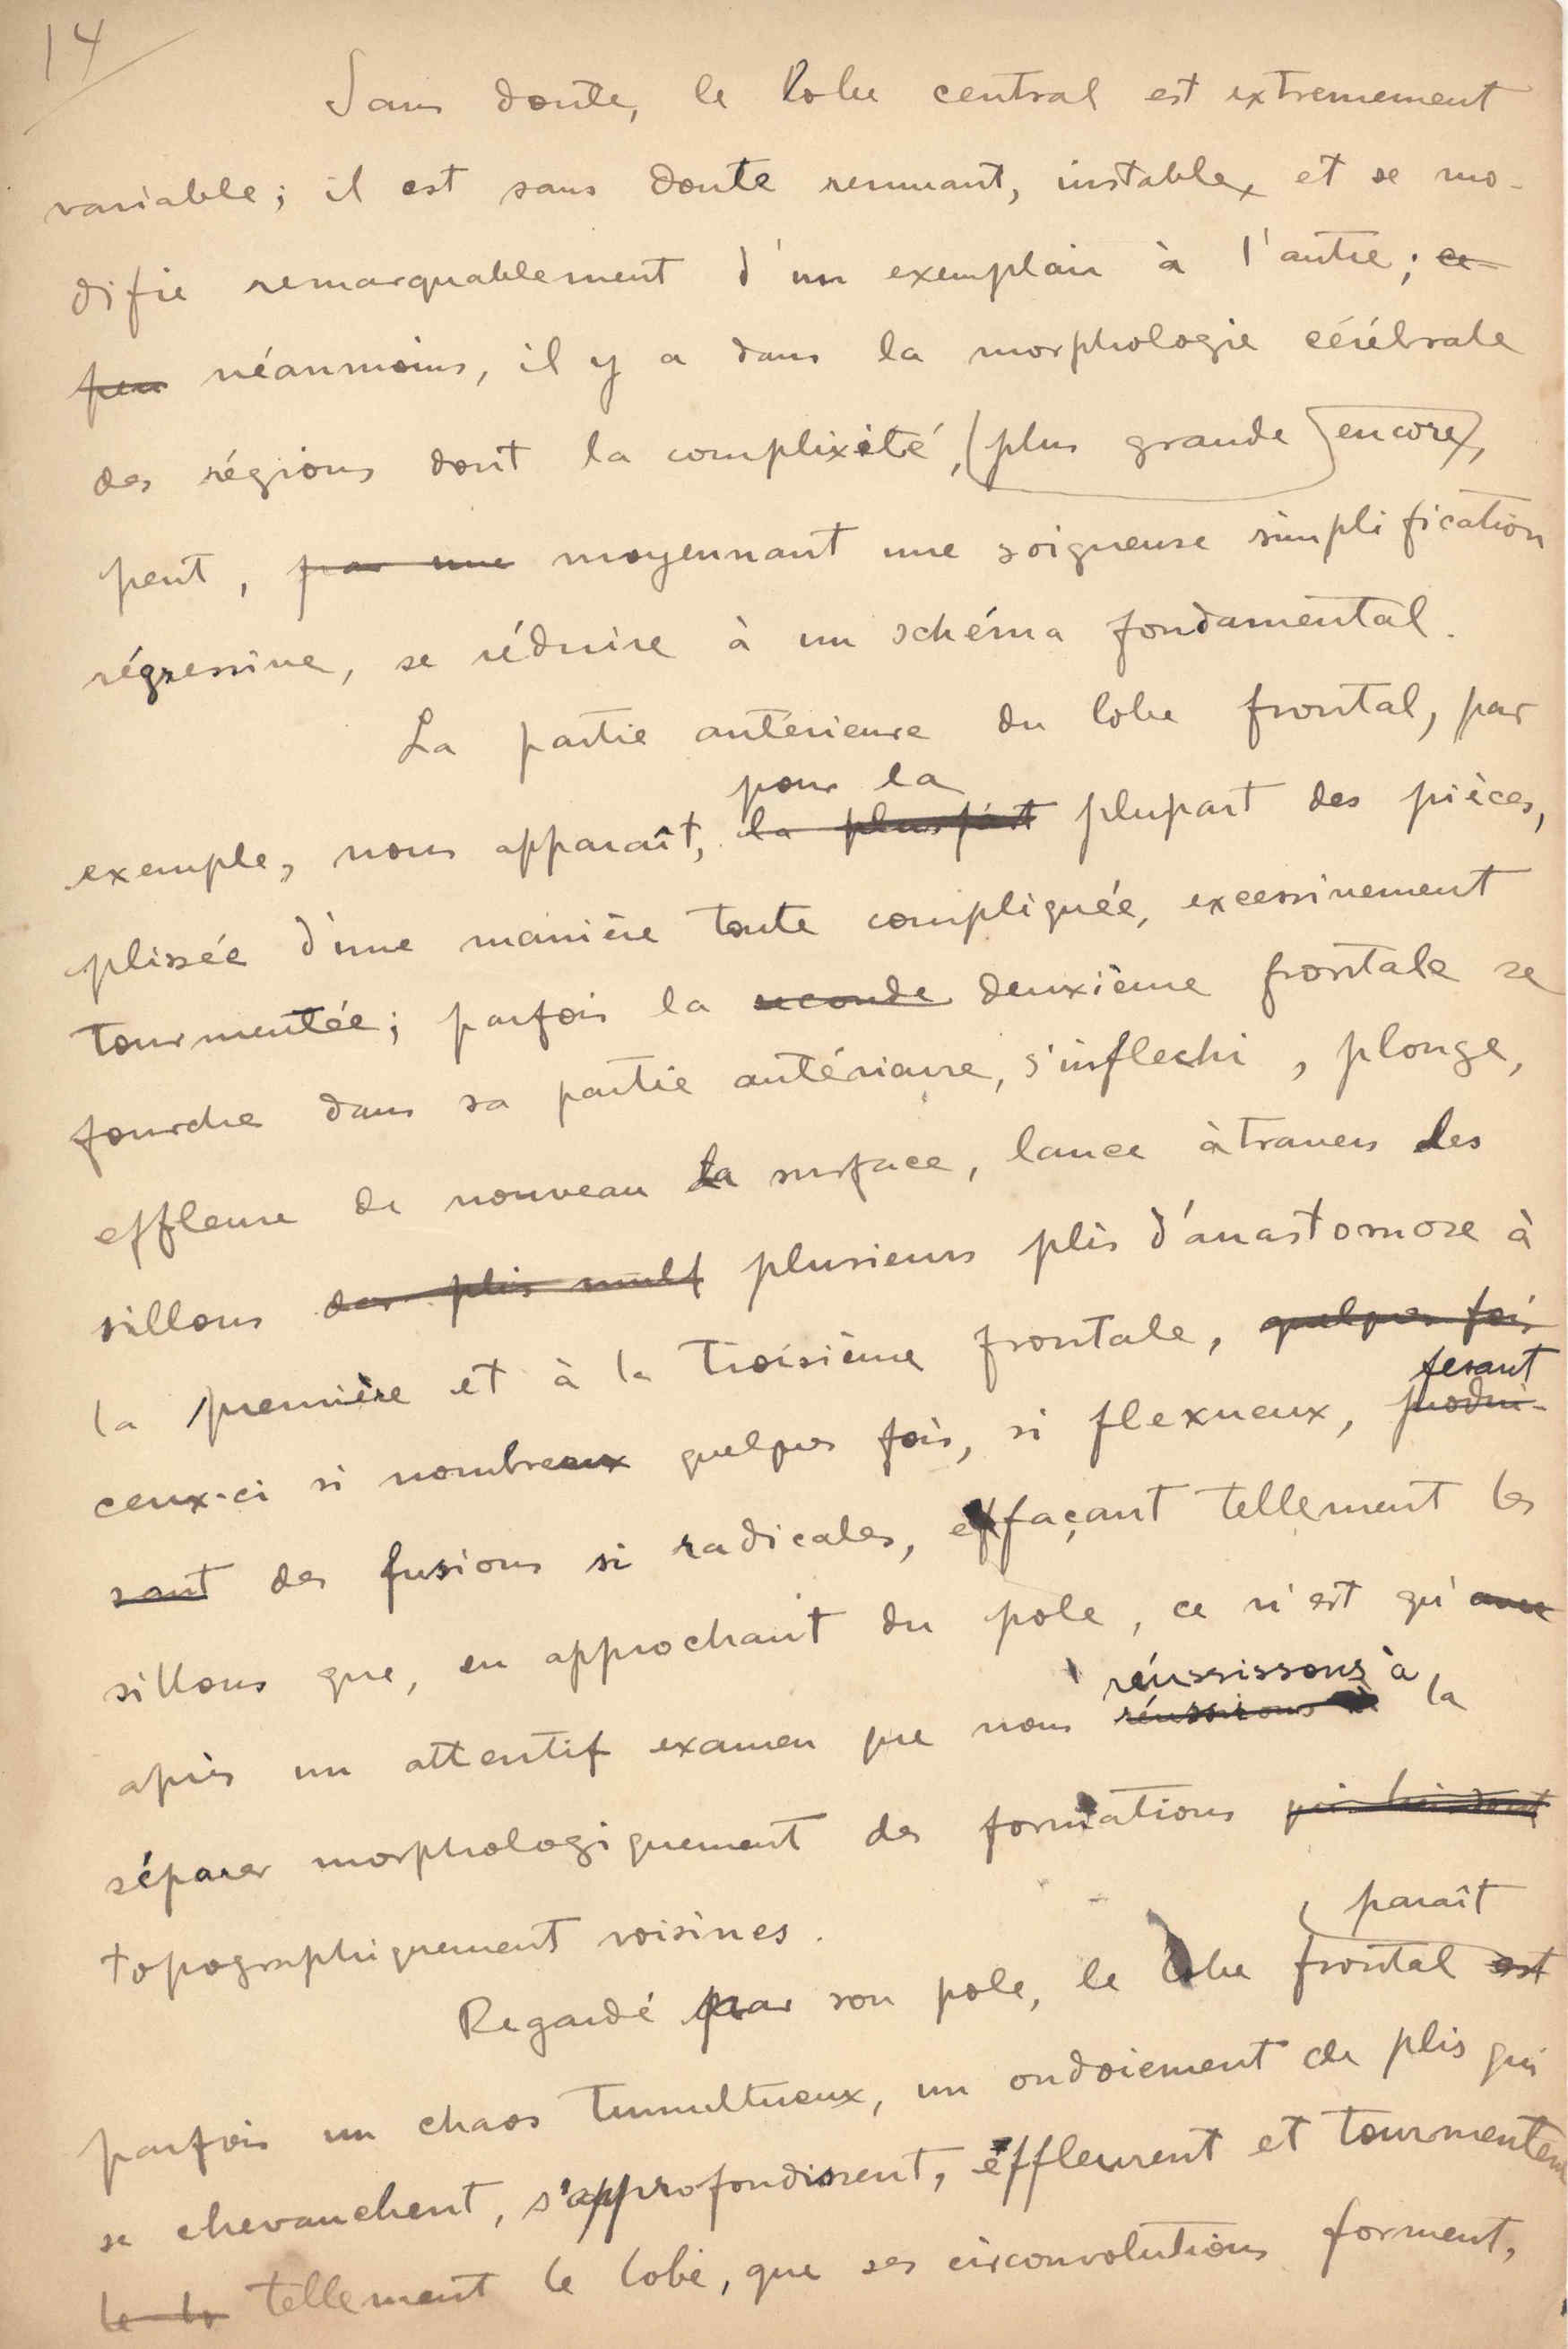 14
Sans doute, le lobe central est extremement
variable; il est sans doute remuant, instable, et se mo-
difie remarquablement d'un exemplair à l'autre; ce
peu néanmoins, il y a dans la morphologie cérébrale
des régions dont la complixité, (plus grande encore),
peut, par une moyennant une soigneuse simplification
régressive, se réduire à un schéma fondamental.
La partie antérieure du lobe frontal, par
pour la
exemple, nous apparaît, la plus part plupart des pièces,
plissée d'une manière toute compliquée, excessivement
tourmentée; parfois la seconde deuxième frontale se
fourche dans sa partie antérieure, s'inflechi, plonge,
effleure de nouveau la surface, lance àtravers les
sillons des plis mult plusieurs plis d'anastomose à
la première et à la troisième frontale, quelques fois
fesant
ceux-ci si nombreux quelques fois, si flexueux, produi-
sant des fusions si radicales, effaçant tellement les
sillons que, en approchant du pole, ce n'est qu'avec
réussissons à
après un attentif examen que nous réussions à la
séparer morphologiquement des formations qui lui sont
topographiquement voisines.
paraît
Regardé par son pole, le lobe frontal est
parfois un chaos tumultueux, un ondoiement de plis qui
se chevauchent, s'approfondissent, effleurent et tourmentent
le lo tellement le lobe, que ses circonvolutions forment,